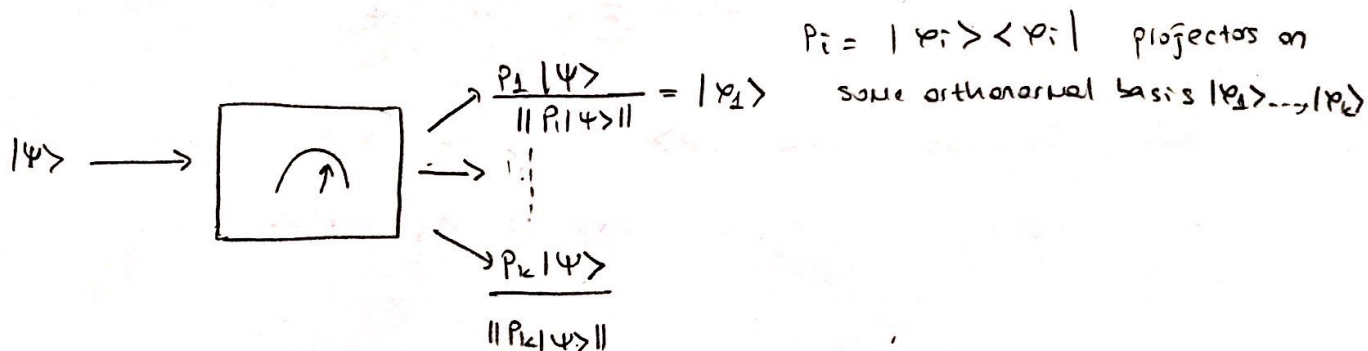 Pi = |φi><φi| projectors on
some orthonormal basis |φ1>...,|φk>
|ψ>
P1|ψ> / ||Pi|ψ>|| = |φ1>
Pk|ψ> / ||Pk|ψ>||